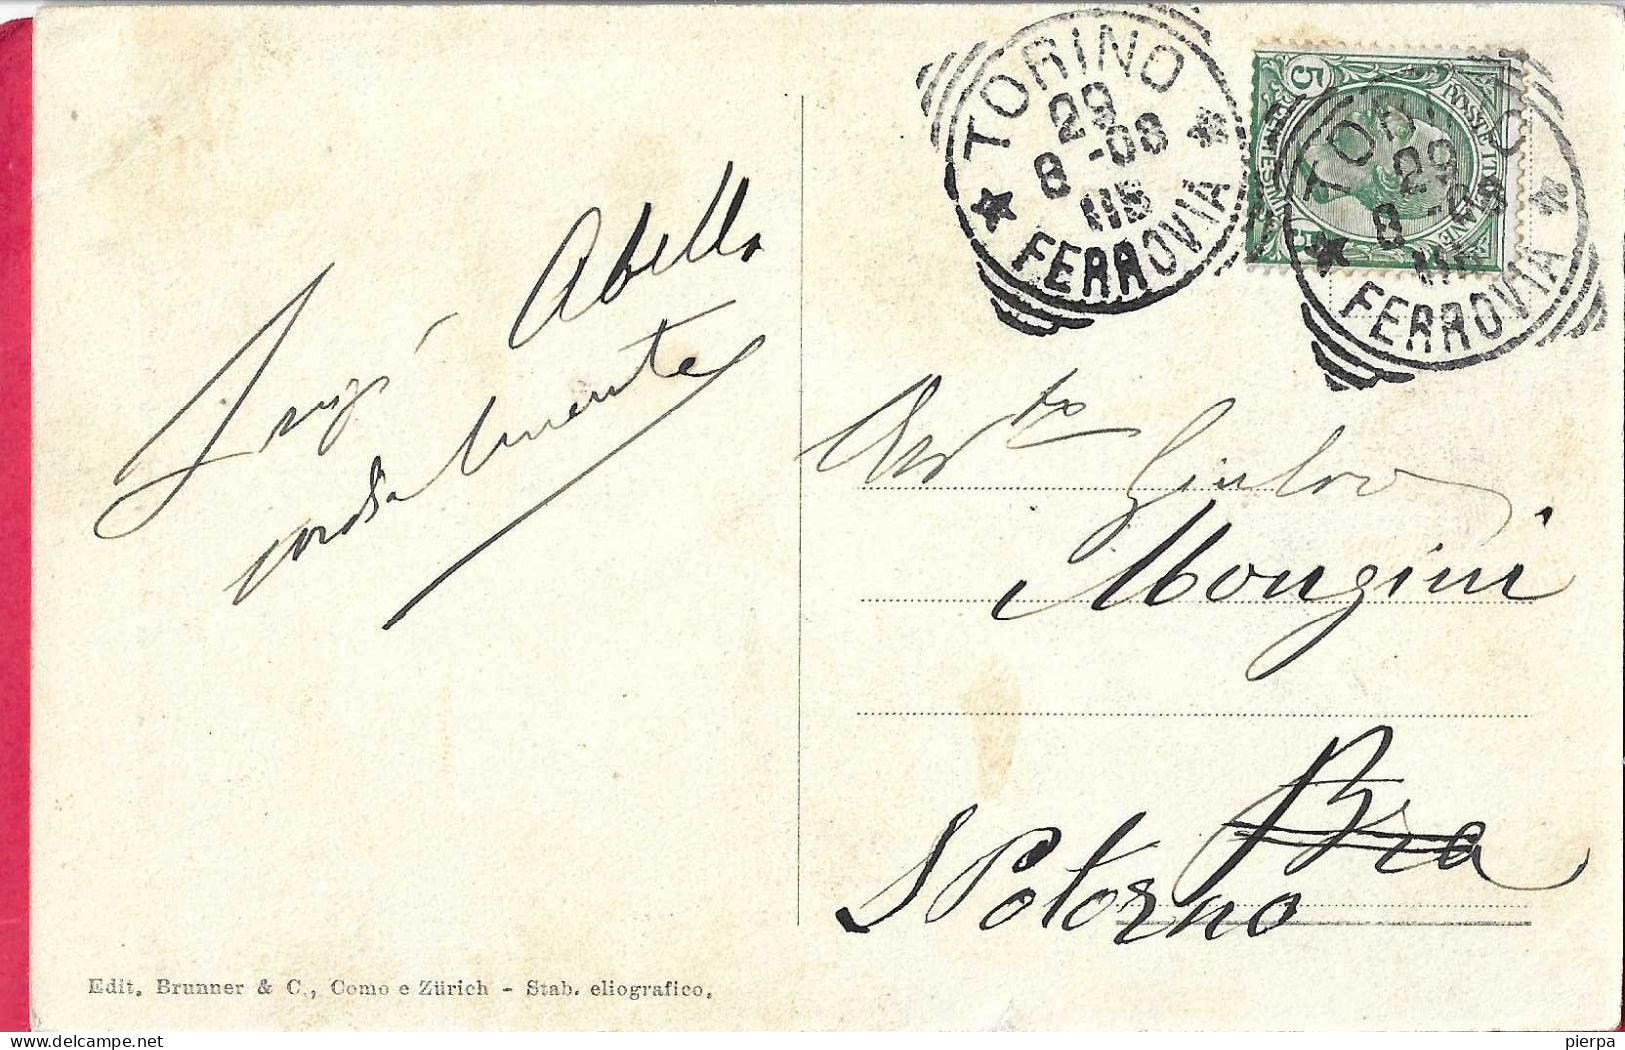 TORINO
29
8 -08
11S
FERROVIA
5
POSTE ITALIANE
CENTESIMI
5
TORINO
29
8 -08
FERROVIA
Luigi Abello
cordialmente
Giulio
Mongini
Bra
Spotorno
Edit. Brunner & C., Como e Zürich - Stab. eliografico.
pierpa